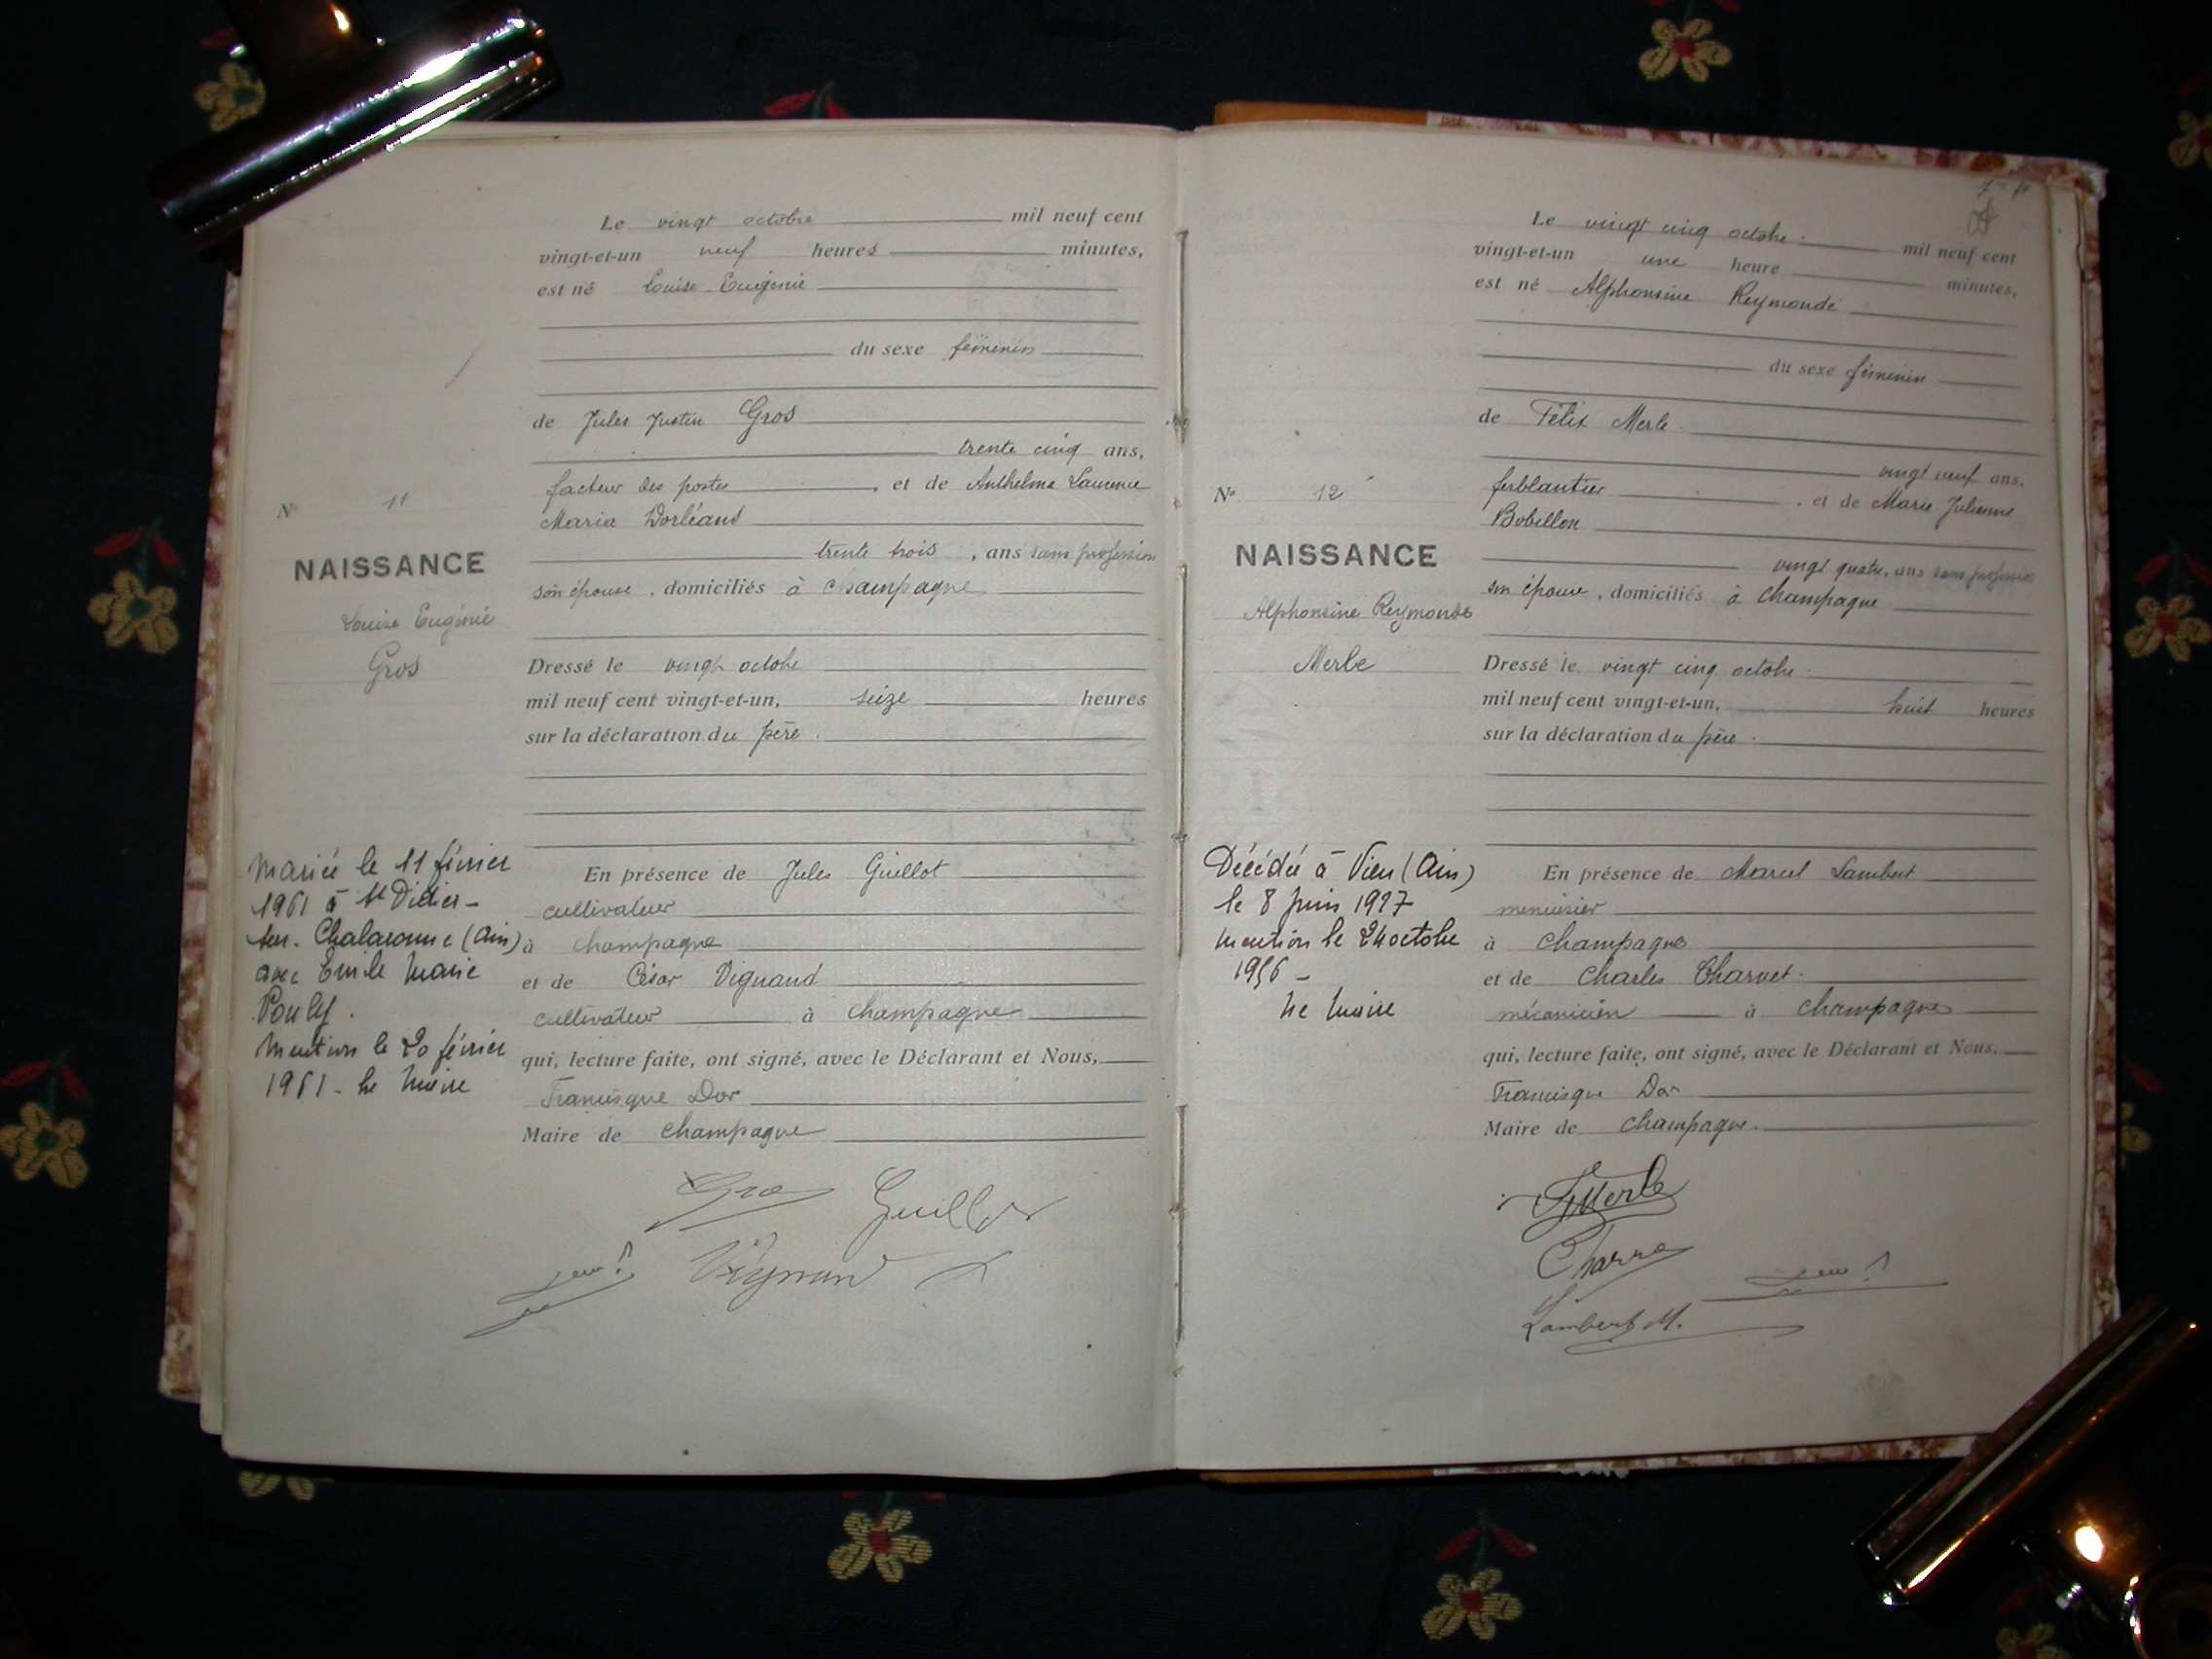 Le vingt octobre mil neuf cent
vingt-et-un neuf heures minutes,
est né Louise Eugénie
du sexe féminin
de Jules Justin Gros
trente cinq ans,
facteur des postes , et de Anthelma Laurence
Maria Dorléans
trente trois , ans sans profession
son épouse , domiciliés à Champagne
Dressé le vingt octobre
mil neuf cent vingt-et-un, seize heures
sur la déclaration du père .
En présence de Jules Guillot
cultivateur
à Champagne
et de César Vignaud
cultivateur à Champagne
qui, lecture faite, ont signé, avec le Déclarant et Nous,
Francisque Dor
Maire de Champagne
Gros Guillot
Vignaud
N° 11
NAISSANCE
Louise Eugénie
Gros
Mariée le 11 février
1961 à St Didier-
sur-Chalaronne (Ain)
avec Emile Marie
Pouly.
Mention le 20 février
1961 - Le Maire
Le vingt cinq octobre mil neuf cent
vingt-et-un une heure minutes,
est né Alphonsine Reymonde
du sexe féminin
de Félix Merle
vingt neuf ans,
ferblantier , et de Marie Julienne
Bobillon
vingt quatre, ans sans profession
son épouse , domiciliés à Champagne
Dressé le vingt cinq octobre
mil neuf cent vingt-et-un, huit heures
sur la déclaration du père .
En présence de Marcel Lambert
menuisier
à Champagne
et de Charles Charvet
mécanicien à Champagne
qui, lecture faite, ont signé, avec le Déclarant et Nous,
Francisque Dor
Maire de Champagne
F Merle
Lambert M.
N° 12
NAISSANCE
Alphonsine Reymonde
Merle
Décédée à Vieu (Ain)
le 8 juin 1927
Mention le 24 octobre
1956 -
Le Maire